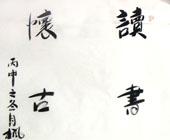 讀書
懷古
丙申之冬月楓